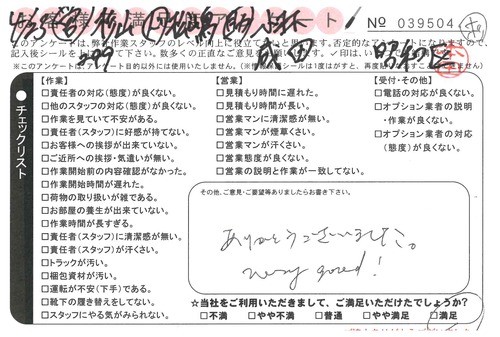 No 039504
このアンケートは、弊社作業スタッフのレベル向上に役立てたいと思います。否定的なアンケートになりますが、
記入後シールを上に
※このアンケートは、アンケート目的以外には使用いたしません。
チェックリスト
【作業】
□責任者の対応(態度)が良くない。
□他のスタッフの対応(態度)が良くない。
□作業を見ていて不安がある。
□責任者(スタッフ)に好感が持てない。
□お客様への挨拶が出来ていない。
□ご近所への挨拶・気遣いが無い。
□作業開始前の内容確認がなかった。
□作業開始時間が遅れた。
□荷物の取り扱いが雑である。
□お部屋の養生が出来ていない。
□作業時間が長すぎる。
□責任者(スタッフ)に清潔感が無い。
□責任者(スタッフ)が汗くさい。
□トラックが汚い。
□梱包資材が汚い。
□運転が不安(下手)である。
□靴下の履き替えをしてない。
□スタッフにやる気がみられない。
【営業】
□見積もり時間に遅れた。
□見積もり時間が長い。
□営業マンに清潔感が無い。
□営業マンが煙草くさい。
□営業マンが汗くさい。
□営業態度が良くない。
□営業の説明と作業が一致してない。
【受付・その他】
□電話の対応が良くない。
□オプション業者の説明
・作業が良くない。
□オプション業者の対応
(態度)が良くない。
その他、ご意見・ご要望等ありましたらお書き下さい。
ありがとうございました。
very good!
☆当社をご利用いただきまして、ご満足いただけたでしょうか?
□不満 □やや不満 □普通 □やや満足 □満足